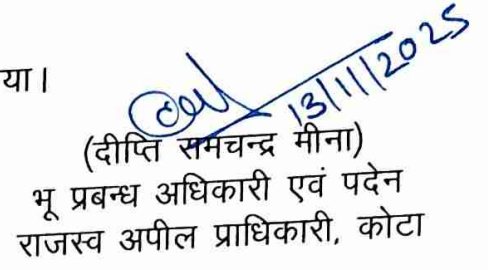 या।
13/11/2025
(दीप्ति रामचन्द्र मीना)
भू प्रबन्ध अधिकारी एवं पदेन
राजस्व अपील प्राधिकारी, कोटा